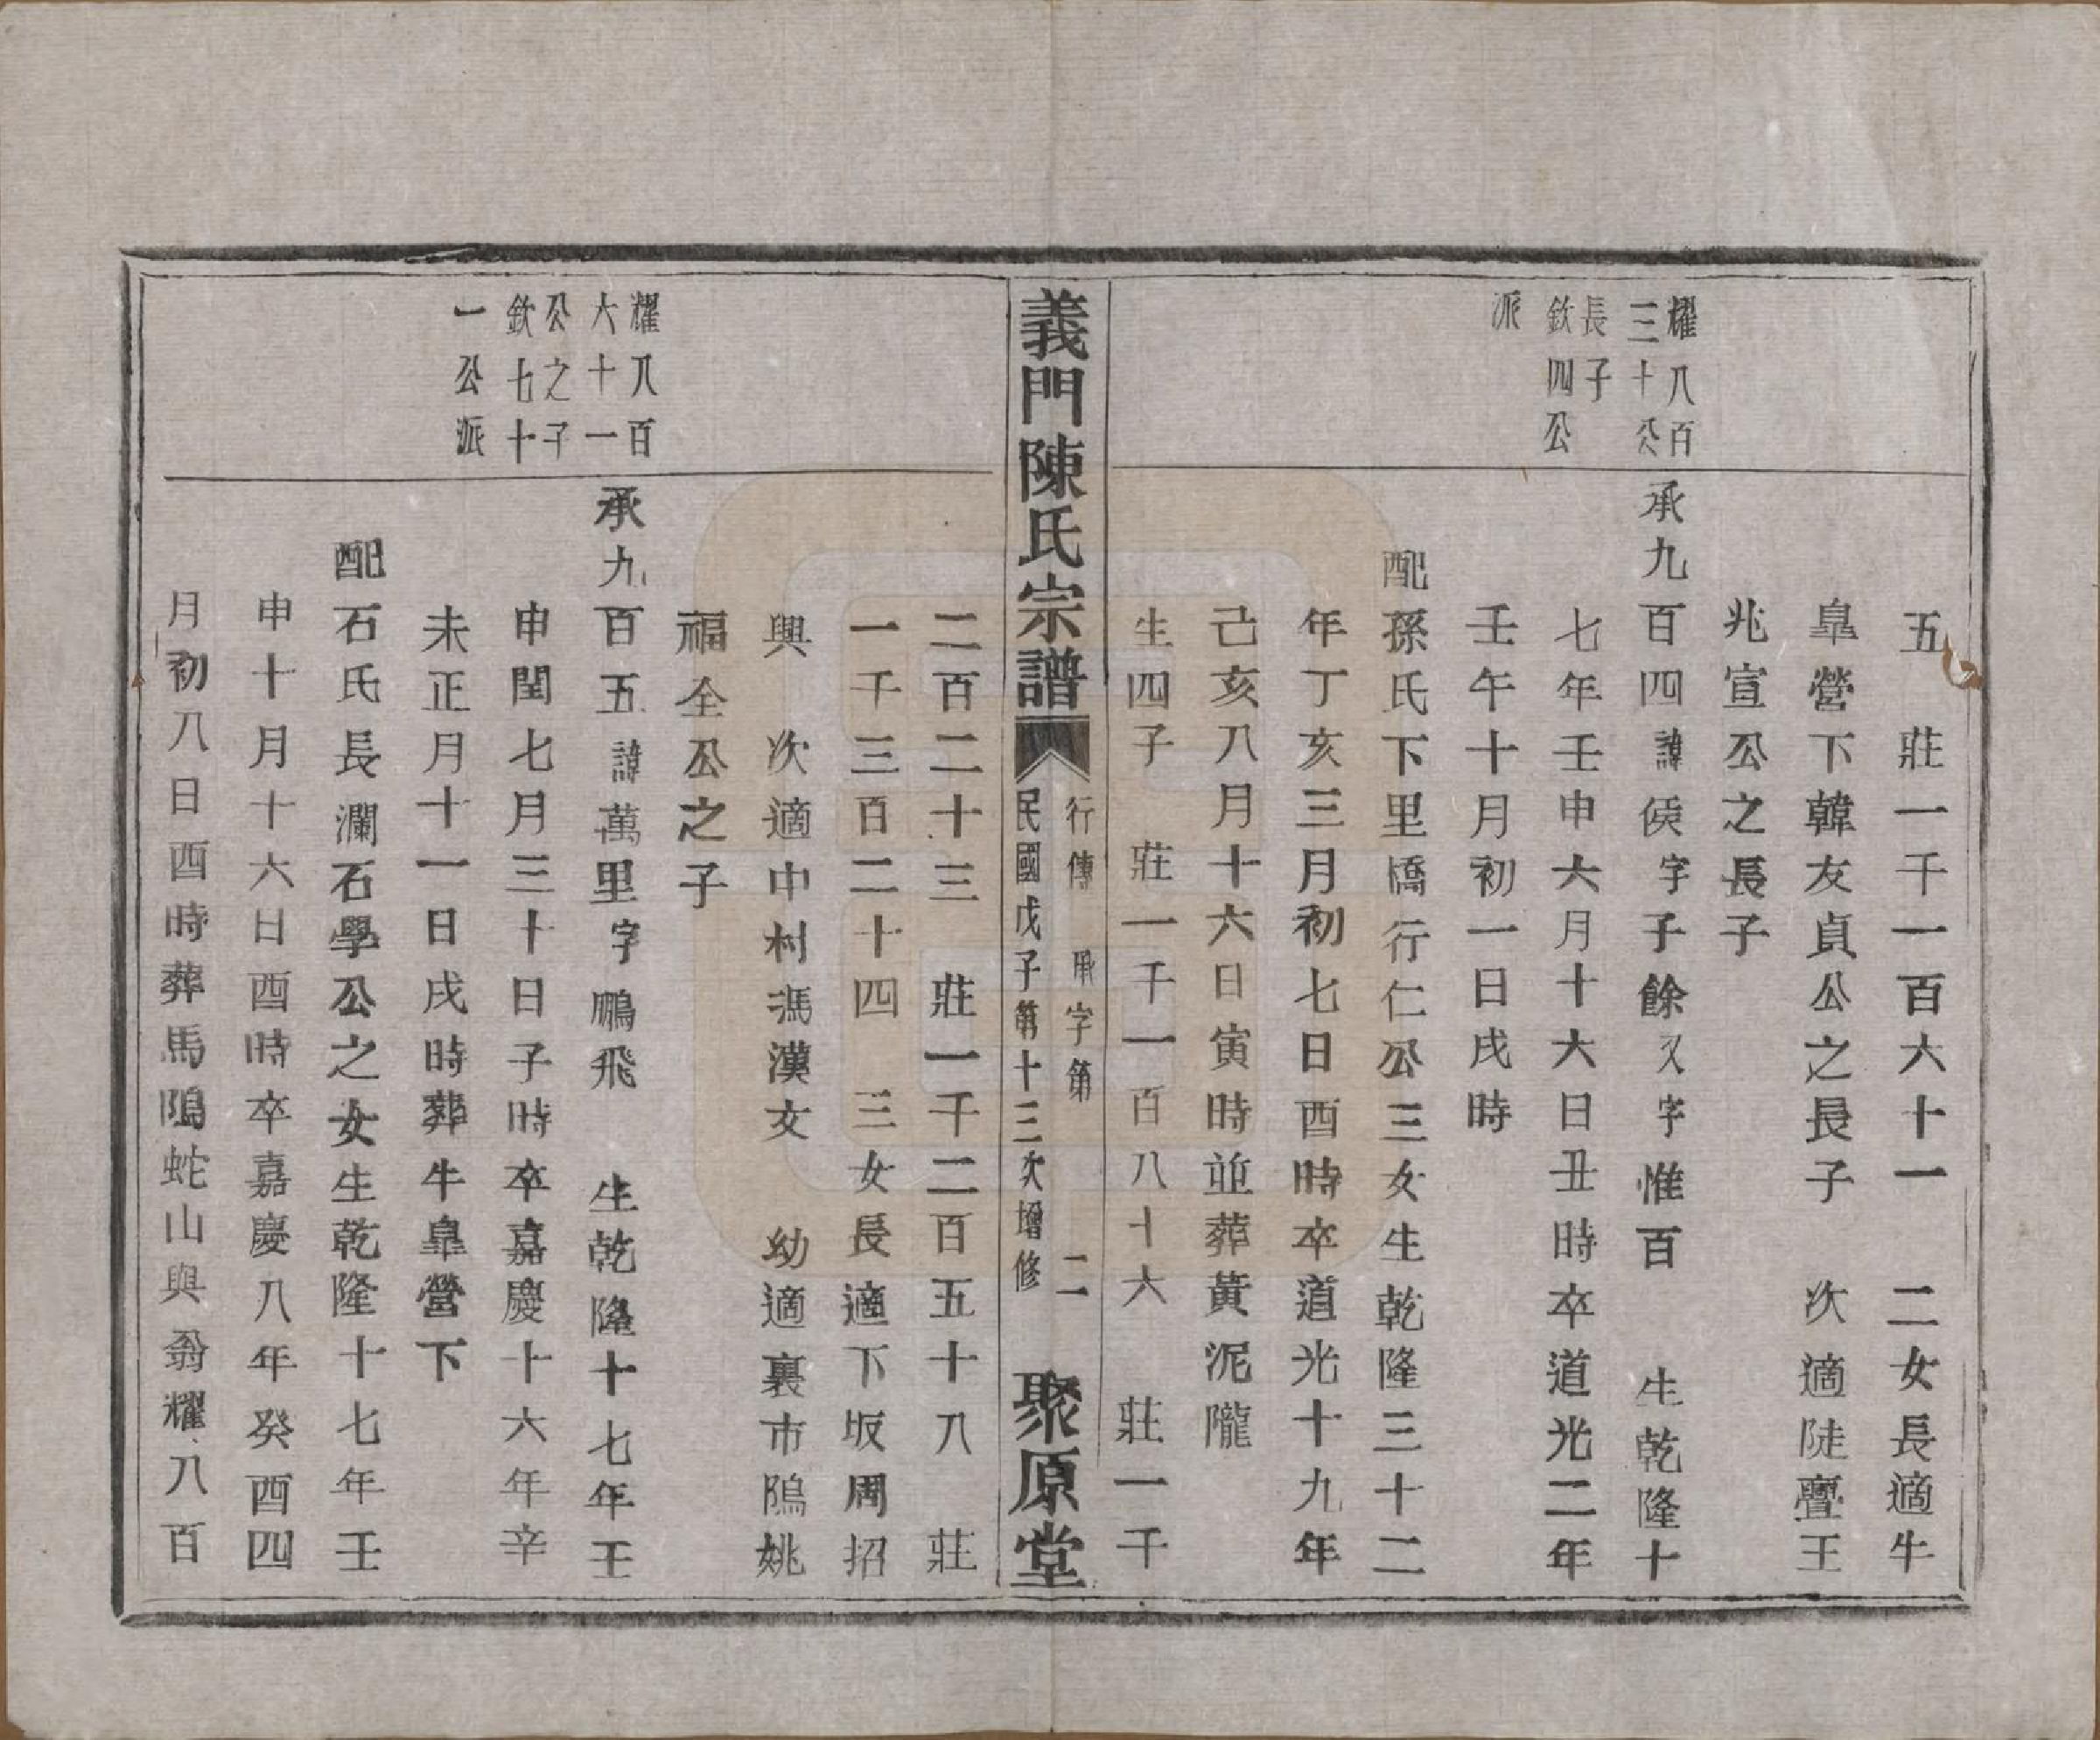 五　莊一千一百六十一　二女長適牛
皐營下韓友貞公之長子　次適陡亹王
兆宣公之長子
耀八百
三十公
長子
欽四公
派
承九百四諱俟字子餘又字惟百　生乾隆十
七年壬申六月十六日丑時卒道光二年
壬午十月初一日戌時
配孫氏下里橋行仁公三女生乾隆三十二
年丁亥三月初七日酉時卒道光十九年
己亥八月十六日寅時並葬黃泥隴
生四子　莊一千一百八十六　莊一千
義門陳氏宗譜
行傳　承字第　二
民國戊子第十三次增修
聚原堂
二百二十三　莊一千二百五十八　莊
一千三百二十四　三女長適下坂周招
興　次適中村馮漢文　幼適裏市隝姚
福全公之子
耀八百
六十一
公之子
欽七十
一公派
承九百五諱萬里字鵬飛　生乾隆十七年壬
申閏七月三十日子時卒嘉慶十六年辛
未正月十一日戌時葬牛皐營下
配石氏長瀾石學公之女生乾隆十七年壬
申十月十六日酉時卒嘉慶八年癸酉四
月初八日酉時葬馬隝蛇山與翁耀八百